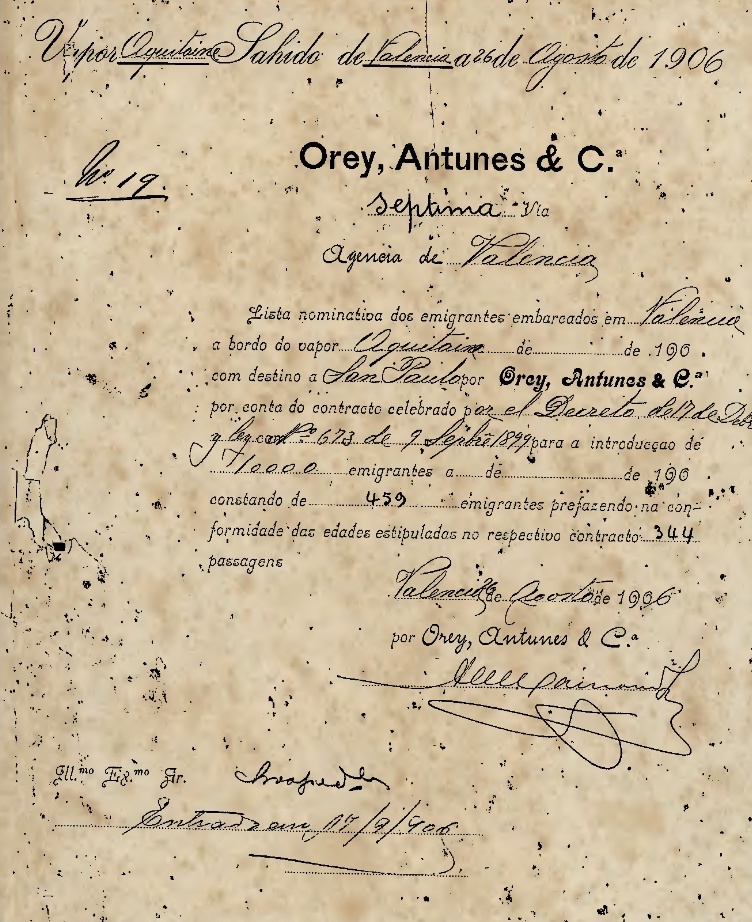 Vapor Aquitaine Sahido de Valencia a 26 de Agosto de 1906
Nº. 19.
Orey, Antunes & C.ª
Septima Via
Agencia de Valencia
Lista nominativa dos emigrantes embarcados em Valencia
a bordo do vapor Aquitaine de de 190 .
com destino a San Paulo por Orey, Antunes & C.ª
por conta do contracto celebrado por el Decreto de 17 de
y ley Nº 673 de 9 Septbre 1899 para a introducçao de
10000 emigrantes a de de 190
constando de 459 emigrantes prefazendo na con-
formidade das edades estipuladas no respectivo contracto 344
passagens
Valencia 26 de Agosto de 1906
por Orey, Antunes & C.ª
Ill.mo Ex.mo Sr.
Entrada em 17/9/906